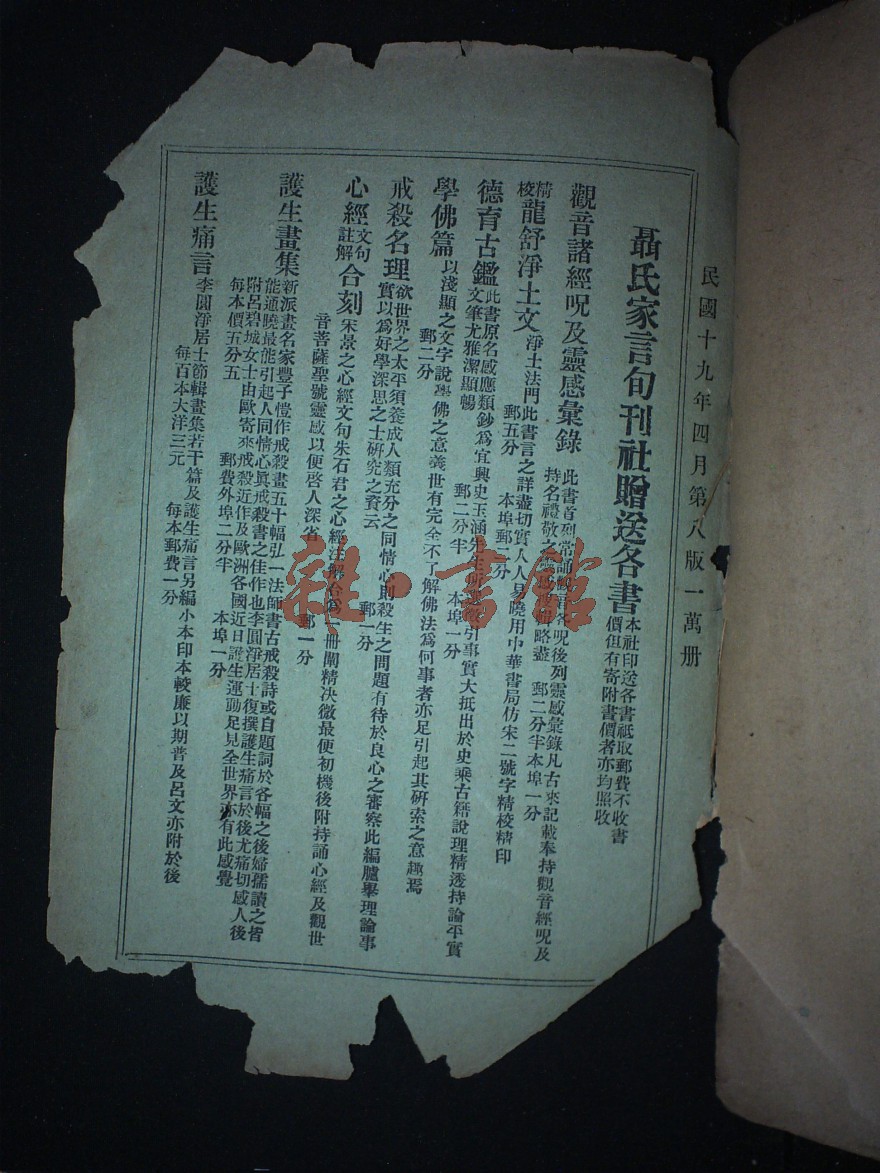 民國十九年四月第八版一萬册
聶氏家言旬刊社贈送各書
本社印送各書祗取郵費不收書
價但有寄附書價者亦均照收
觀音諸經呪及靈感彙錄
此書首列常誦觀音各呪後列靈感彙錄凡古來記載奉持觀音經呪及
持名禮敬之 略盡 郵二分半本埠一分
精校龍舒淨土文
淨土法門此書言之詳盡切實人人易曉用中華書局仿宋二號字精校精印
郵五分 本埠郵二分
德育古鑑
此書原名感應類鈔爲宜興史玉涵先生所 引事實大抵出於史乘古籍說理精透持論平實
文筆尤雅潔顯暢 郵二分半 本埠一分
學佛篇
以淺顯之文字說學佛之意義世有完全不了解佛法爲何事者亦足引起其研索之意趣焉
郵二分
戒殺名理
欲世界之太平須養成人類充分之同情心則殺生之問題有待於良心之審察此編臚舉理論事
實以爲好學深思之士研究之資云 郵一分
心經文句註解合刻
宋景之心經文句朱石君之心經注解合爲一册闡精決微最便初機後附持誦心經及觀世
音菩薩聖號靈感以便啓人深省 郵一分
護生畫集
新派畫名家豐子愷作戒殺畫五十幅弘一法師書古戒殺詩或自題詞於各幅之後婦孺讀之皆
能通曉最能引起人同情心眞戒殺書之佳作也李圓淨居士復撰護生痛言於後尤痛切感人後
附呂碧城女士由歐寄來戒殺近作及歐洲各國近日護生運動足見全世界亦有此感覺
每本價五分五 郵費外埠二分半 本埠一分
護生痛言
李圓淨居士節輯畫集若干篇及護生痛言另編小本印本較廉以期普及呂文亦附於後
每百本大洋三元 每本郵費一分
雜·書館